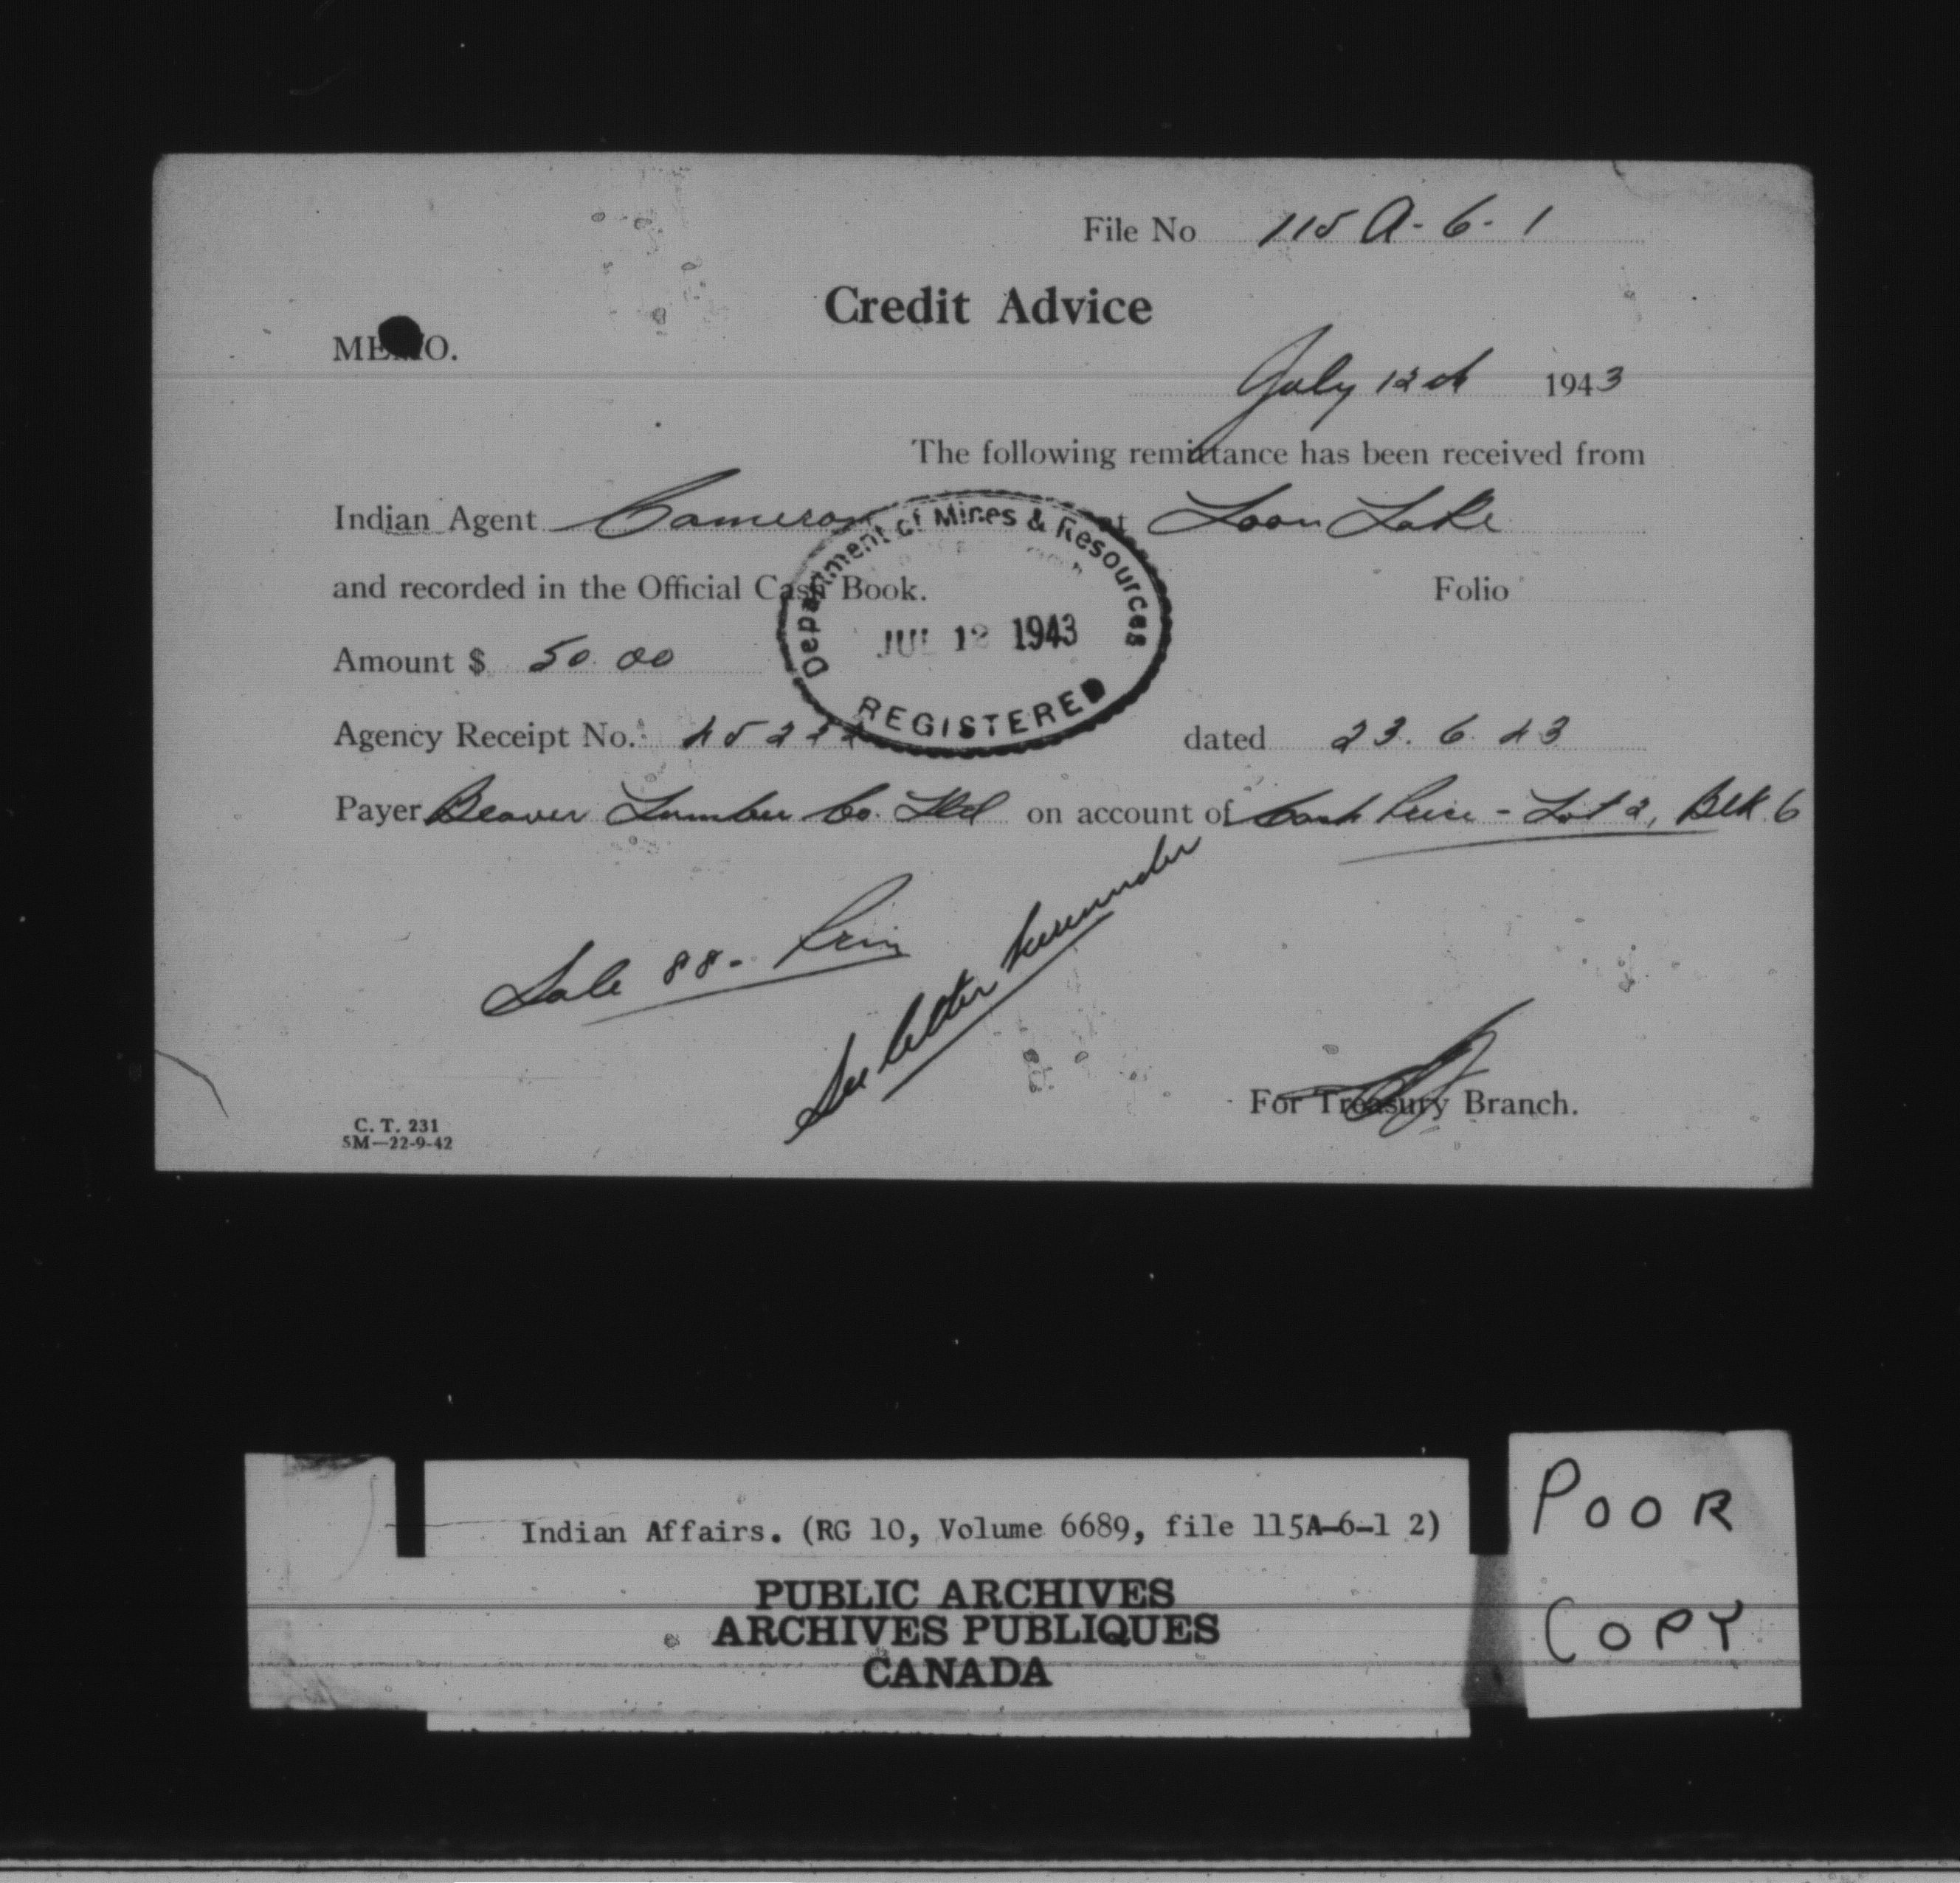 File No 115A-6-1
Credit Advice
MEMO.
July 12th 1943
The following remittance has been received from
Indian Agent Cameron at Loon Lake
and recorded in the Official Cash Book. Folio
Department of Mines & Resources
JUL 12 1943
REGISTERED
Amount $ 50.00
Agency Receipt No. dated 23.6.43
Payer Beaver Lumber Co. Ltd on account of Cash Price - Lot 2, Blk. 6
Sale 88- Prin
See letter hereunder
For Treasury Branch.
C. T. 231
5M—22-9-42
Indian Affairs. (RG 10, Volume 6689, file 115A-6-1 2)
PUBLIC ARCHIVES
ARCHIVES PUBLIQUES
CANADA
POOR
COPY